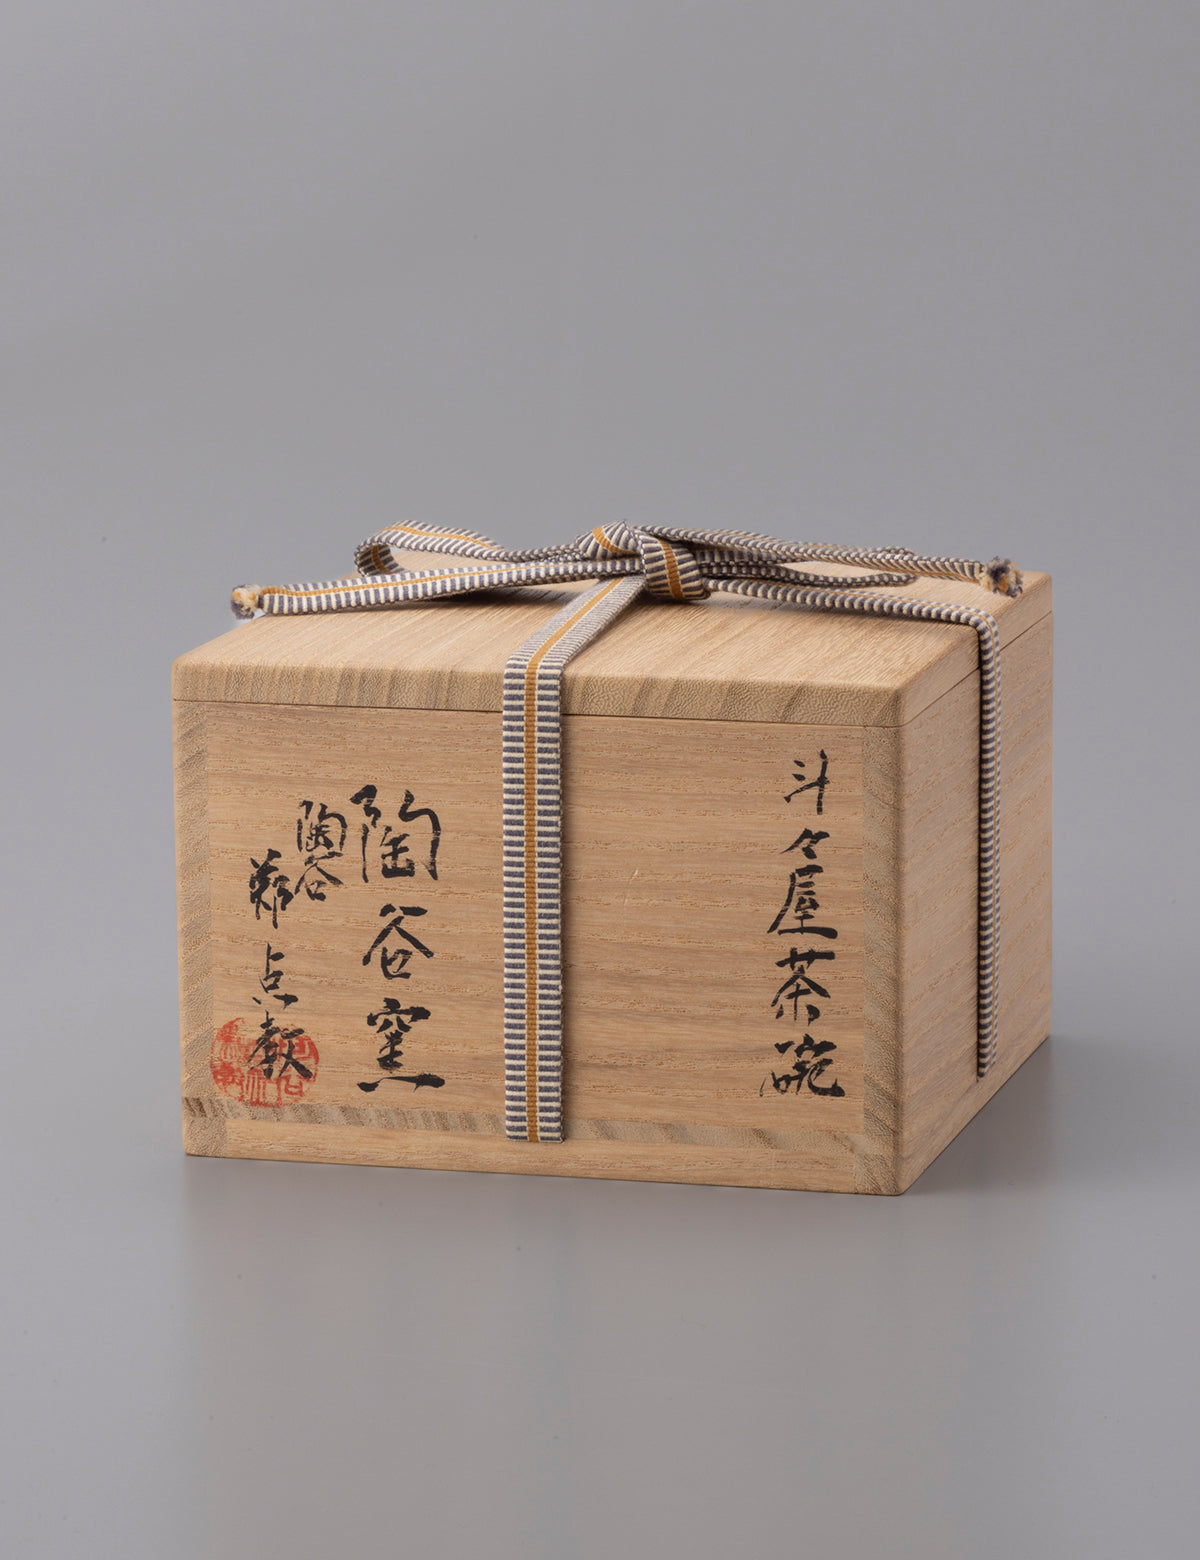 斗々屋茶碗
陶谷窯
陶谷
鄭点教